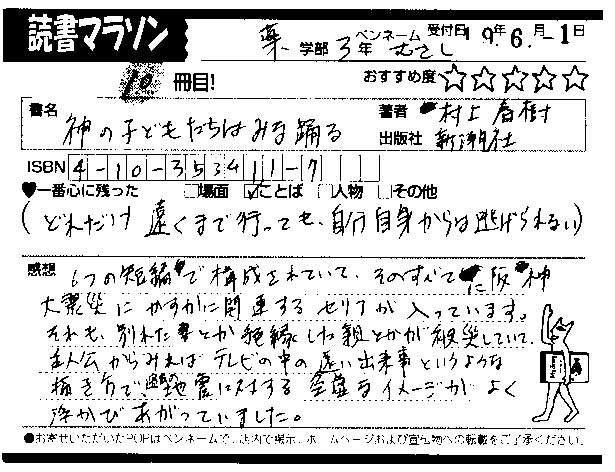 読書マラソン
薬 学部 3年 ペンネーム むさし 受付日 19年 6月 1日
10 冊目! おすすめ度 ☆☆☆☆☆
書名 神の子どもたちはみな踊る
著者 村上春樹
出版社 新潮社
ISBN 4-10-353411-7
♥一番心に残った □場面 ☑ことば □人物 □その他
(どれだけ遠くまで行っても、自分自身からは逃げられない)
感想 6つの短編で構成されていて、そのすべてに阪神
大震災にかすかに関連するセリフが入っています。
それも、別れた妻とか絶縁した親とかが被災していて、
主人公からみればテレビの中の遠い出来事というような
描き方で、地震に対する空虚なイメージがよく
浮かびあがっていました。
●お寄せいただいたPOPはペンネームで、店内で掲示、ホームページおよび宣伝物への転載をご了承ください。